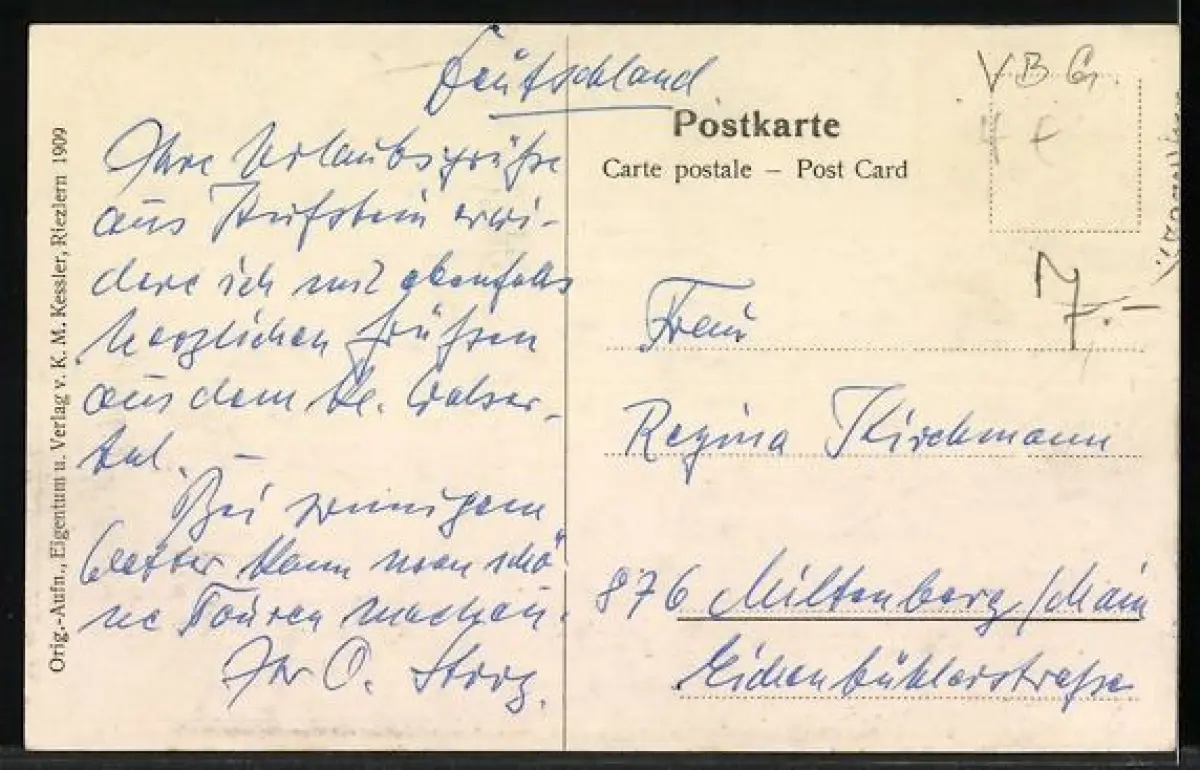 Deutschland
Postkarte
Carte postale – Post Card
VBG.
Ihre Urlaubsgrüße
aus Kufstein erwi-
dere ich mit ebenfalls
herzlichen Grüßen
aus dem Kl. Walser-
tal. –
Bei sonnigem
Wetter kann man schö-
ne Touren machen.
Ihr O. Storz.
7.–
Frau
Regina Kirchmann
876 Miltenberg/Main
Eichenbühlerstraße
Orig.-Aufn., Eigentum u. Verlag v. K. M. Kessler, Riezlern 1909